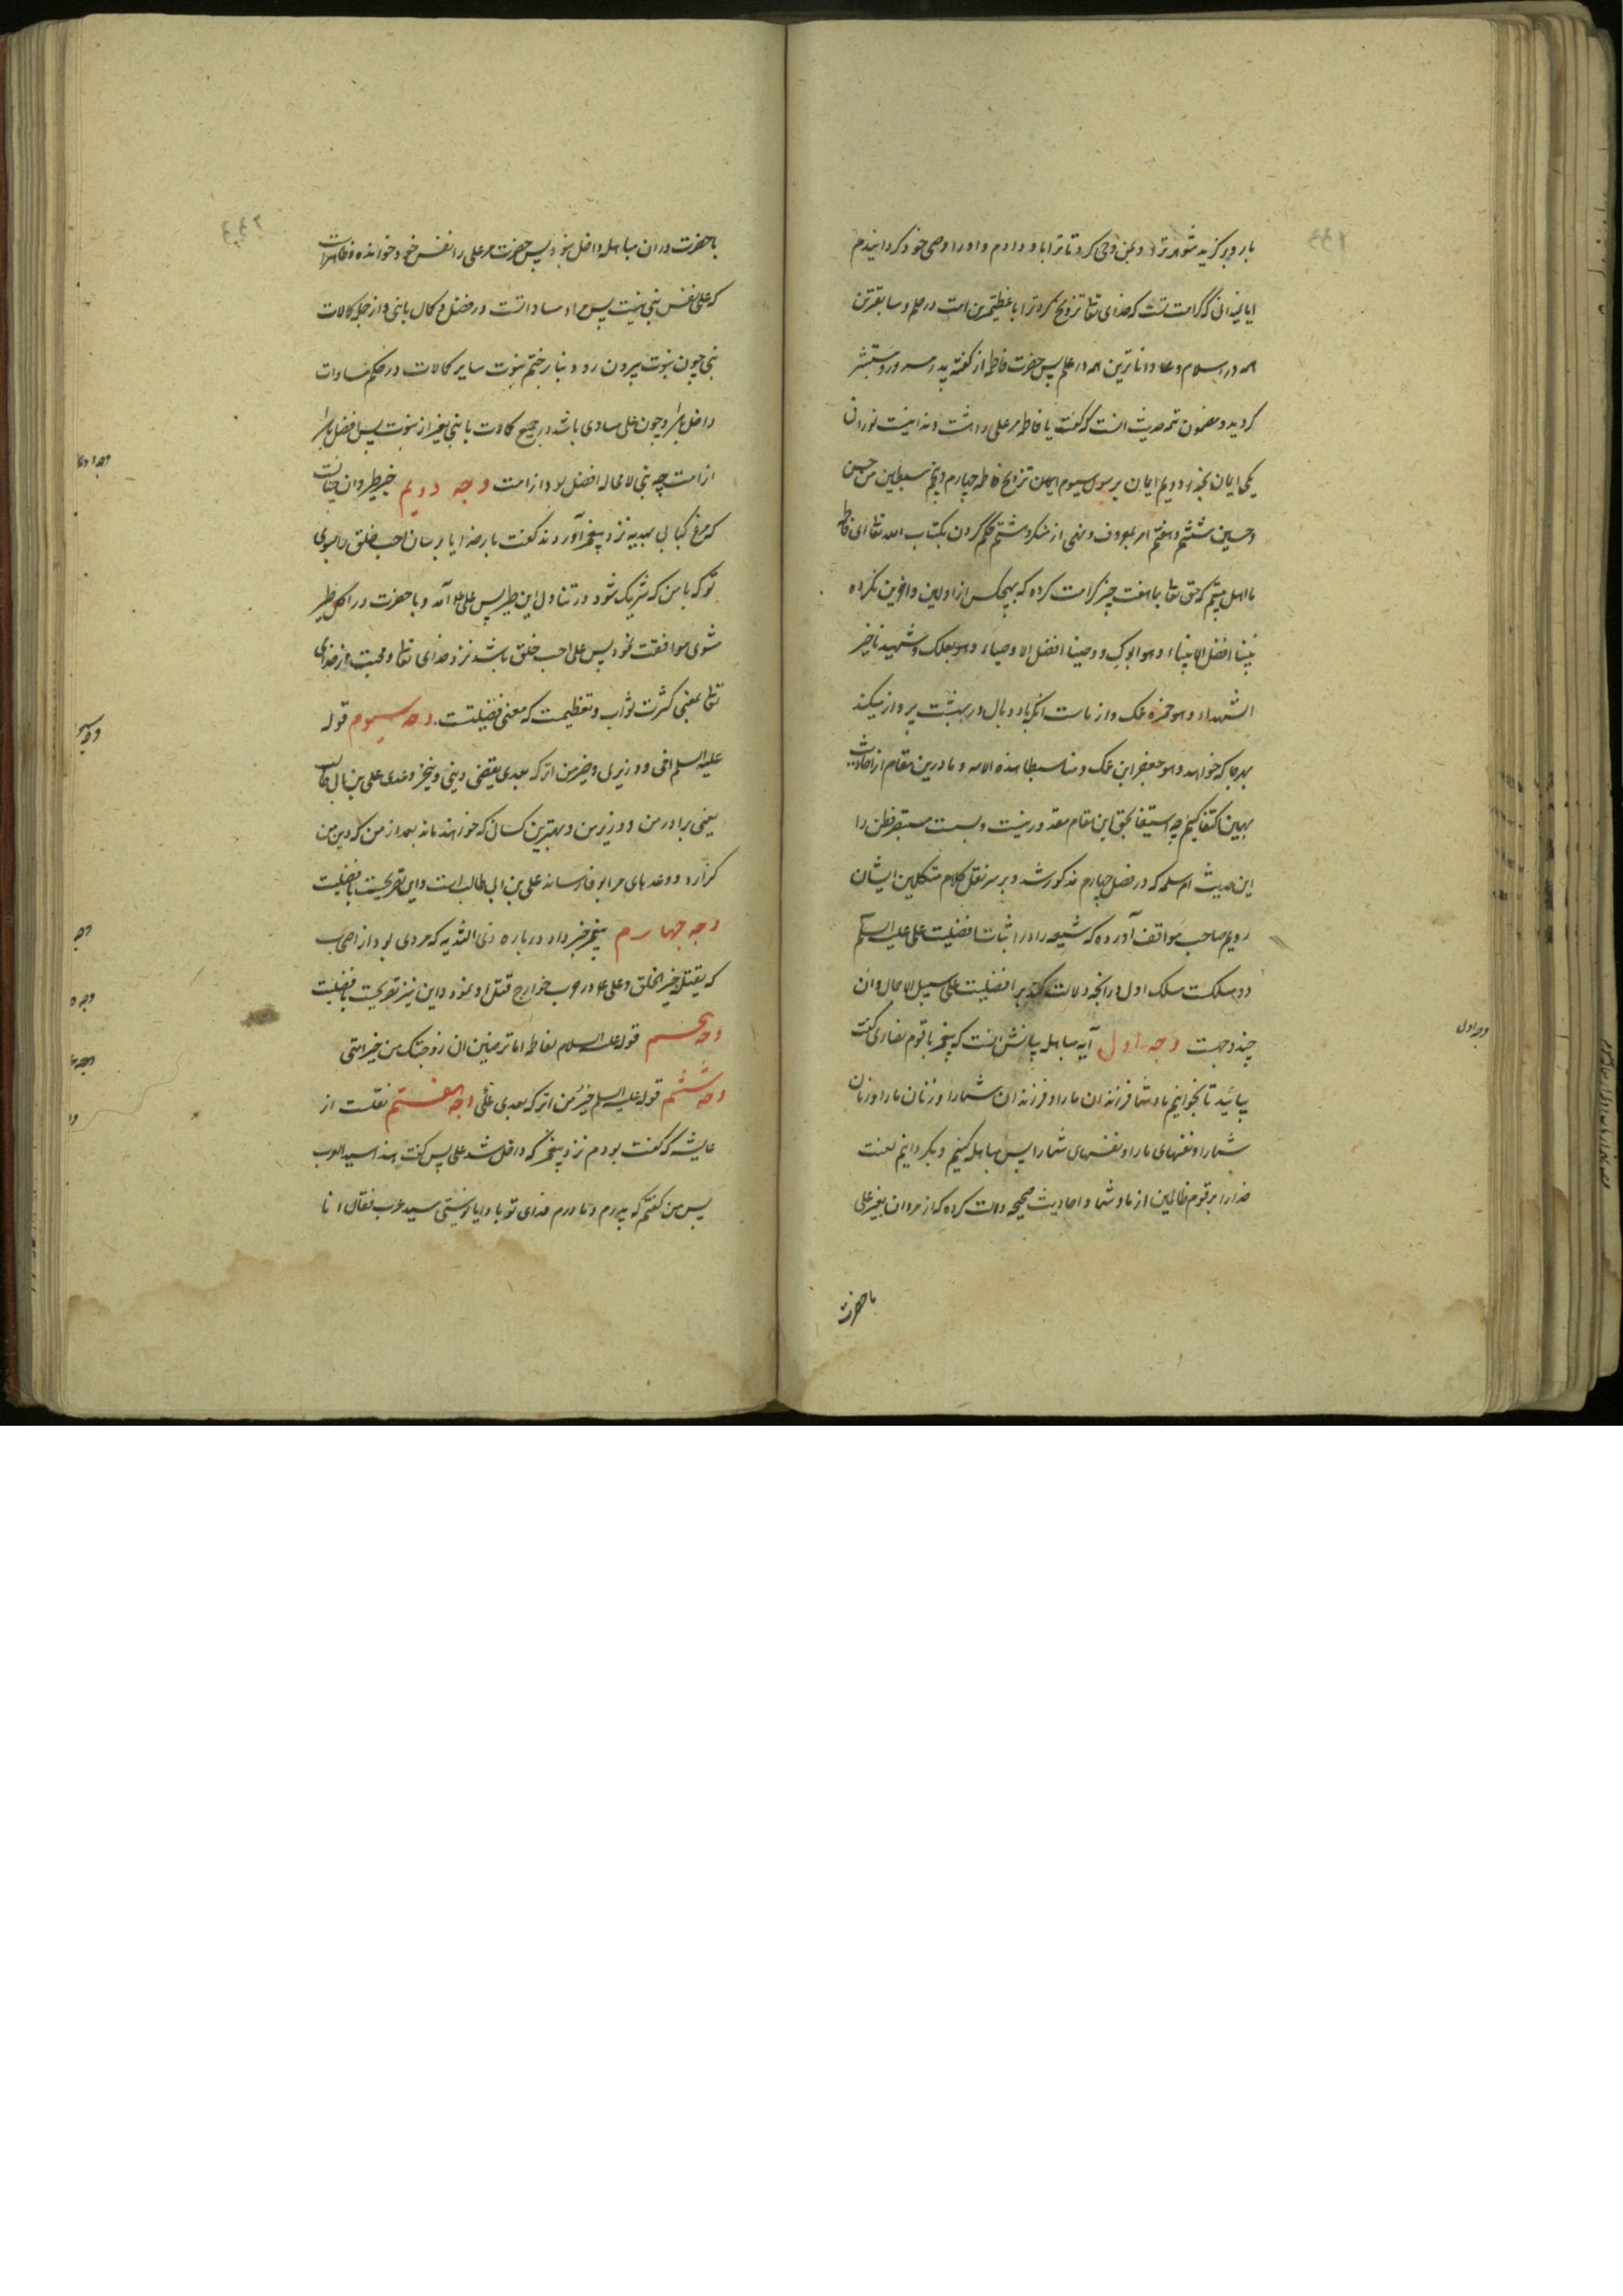 بار دوم برگزید شوهر ترا و بمن وحی کرد تا ترا باو دادم و او را وصی خود گردانیدم
ایا نمیدانی که کرامت تست که خدای تعا تزویج کرد ترا با عظیمترین امت در حلم و سابقترین
همه در اسلام و داناترین همه در علم پس حضرت فاطمه از گفته پدر مسرور و مستبشر
گردید و مضمون تتمه حدیث انست که گفت یا فاطمه مر علی را هشت دندانیست نورانی
یکی ایمان بخدا دویم ایمان برسول سیوم تزویج فاطمه چهارم و پنجم سبطین من حسن
و حسین ششم و هفتم امر بمعروف و نهی از منکر هشتم حکم کردن بکتاب الله تعا ای فاطمه
ما اهل بیتیم که حق تعا بما هفت چیز کرامت کرده که بهیچکس از اولین و آخرین نکرده
نبینا افضل الانبیاء و هو ابوک و وصینا افضل الاوصیاء و هو بعلک و شهیدنا خیر
الشهداء و هو حمزه عمک و از ماست آنکه با دو بال در بهشت پرواز میکند
بهر جا که خواهد و هو جعفر ابن عمک و منا سبطا هذه الامه و ما درین مقام از احادیث
بهمین اکتفا کنیم چه استیفا بحق این مقام مقدور نیست و بست مستبصر فطن را
این حدیث ام سلمه که در فصل چهارم مذکور شد و بر سر نقل کلام متکلمین ایشان
رویم صاحب مواقف آورده که شیعه را در اثبات افضلیت علی علیه السلم
دو مسلکست مسلک اول در آنچه دلالت کند بر افضلیت علی سبیل الاجمال و ان
چند وجهست وجه اول آیه مباهله بیانش انست که پیغمبر با قوم نصاری گفت
بیائید تا بخوانیم ما و شما فرزندان ما را و فرزندان شما را و زنان ما را و زنان
شما را و نفسهای ما را و نفسهای شما را پس مباهله کنیم و بگردانیم لعنت
خدا را بر قوم ظالمین از ما و شما و احادیث صحیحه دلالت کرده که از مردان بغیر علی
باحضرت
وجه اول
باحضرت در ان مباهله داخل نبود پس حضرت مر علی را نفس خود خوانده و ظاهرست
که علی نفس نبی نیست پس مراد مساواتست در فضل و کمال با نبی و از جمله کمالات
نبی چون نبوت بیرون رود بنا بر ختم نبوت سایر کمالات در حکم مساوات
داخل باشد و چون علی مساوی باشد در جمیع کمالات با نبی بغیر از نبوت پس افضل باشد
از امت چه نبی لا محاله افضل بود از امت وجه دویم خبر طیر و ان چنانست
که مرغ کبابی بهدیه نزد پیغمبر آوردند گفت بار خدایا برسان احب خلق را بسوی
تو که با من که شریک شود در تناول این طیر پس علی آمد و باحضرت در اکل طیر
مشوی موافقت نمود پس علی احب خلق باشد نزد خدای تعا و محبت از خدای
تعا بمعنی کثرت ثواب و تعظیمست که معنی فضیلتست وجه سیوم قوله
علیه السلم اخی و وزیری و خیر من اترکه بعدی یقضی دینی و ینجز وعدی علی بن ابی طالب
یعنی برادر من و وزیر من و بهترین کسانی که خواهند ماند بعد از من که دین من
گزارد و وعدهای مرا بوفا رساند علی بن ابی طالب است و این تصریحست بافضلیت
وجه چهارم پیغمبر خبر داد درباره ذی الثدیه که مردی بود از اصحاب
که یقتله خیر الخلق و علی ع در حرب خوارج قتل او نمود و این نیز تصریحست بافضلیت
وجه پنجم قوله علیه السلام لفاطمه اما ترضین ان زوجتک من خیر امتی
وجه ششم قوله علیه السلم خیر من اترکه بعدی علی وجه هفتم نقلست از
عایشه که گفت بودم نزد پیغمبر که داخل شد علی پس گفت هذا سید العرب
پس من گفتم که پدرم و مادرم فدای تو باد ایا تو نیستی سید عرب فقال انا
وجه
وجه ۵